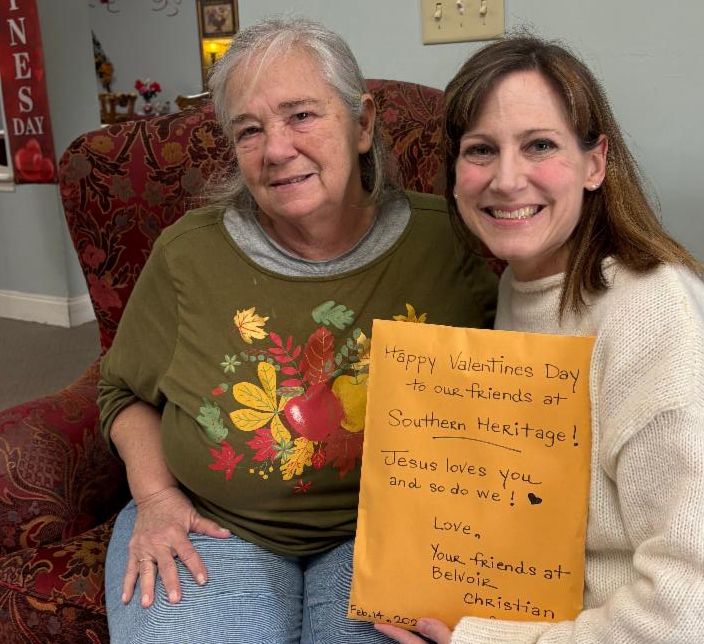 NES
DAY
Happy Valentines Day
to our friends at
Southern Heritage!
Jesus loves you
and so do we!
Love,
Your friends at
Belvoir
Christian
Feb. 14, 202